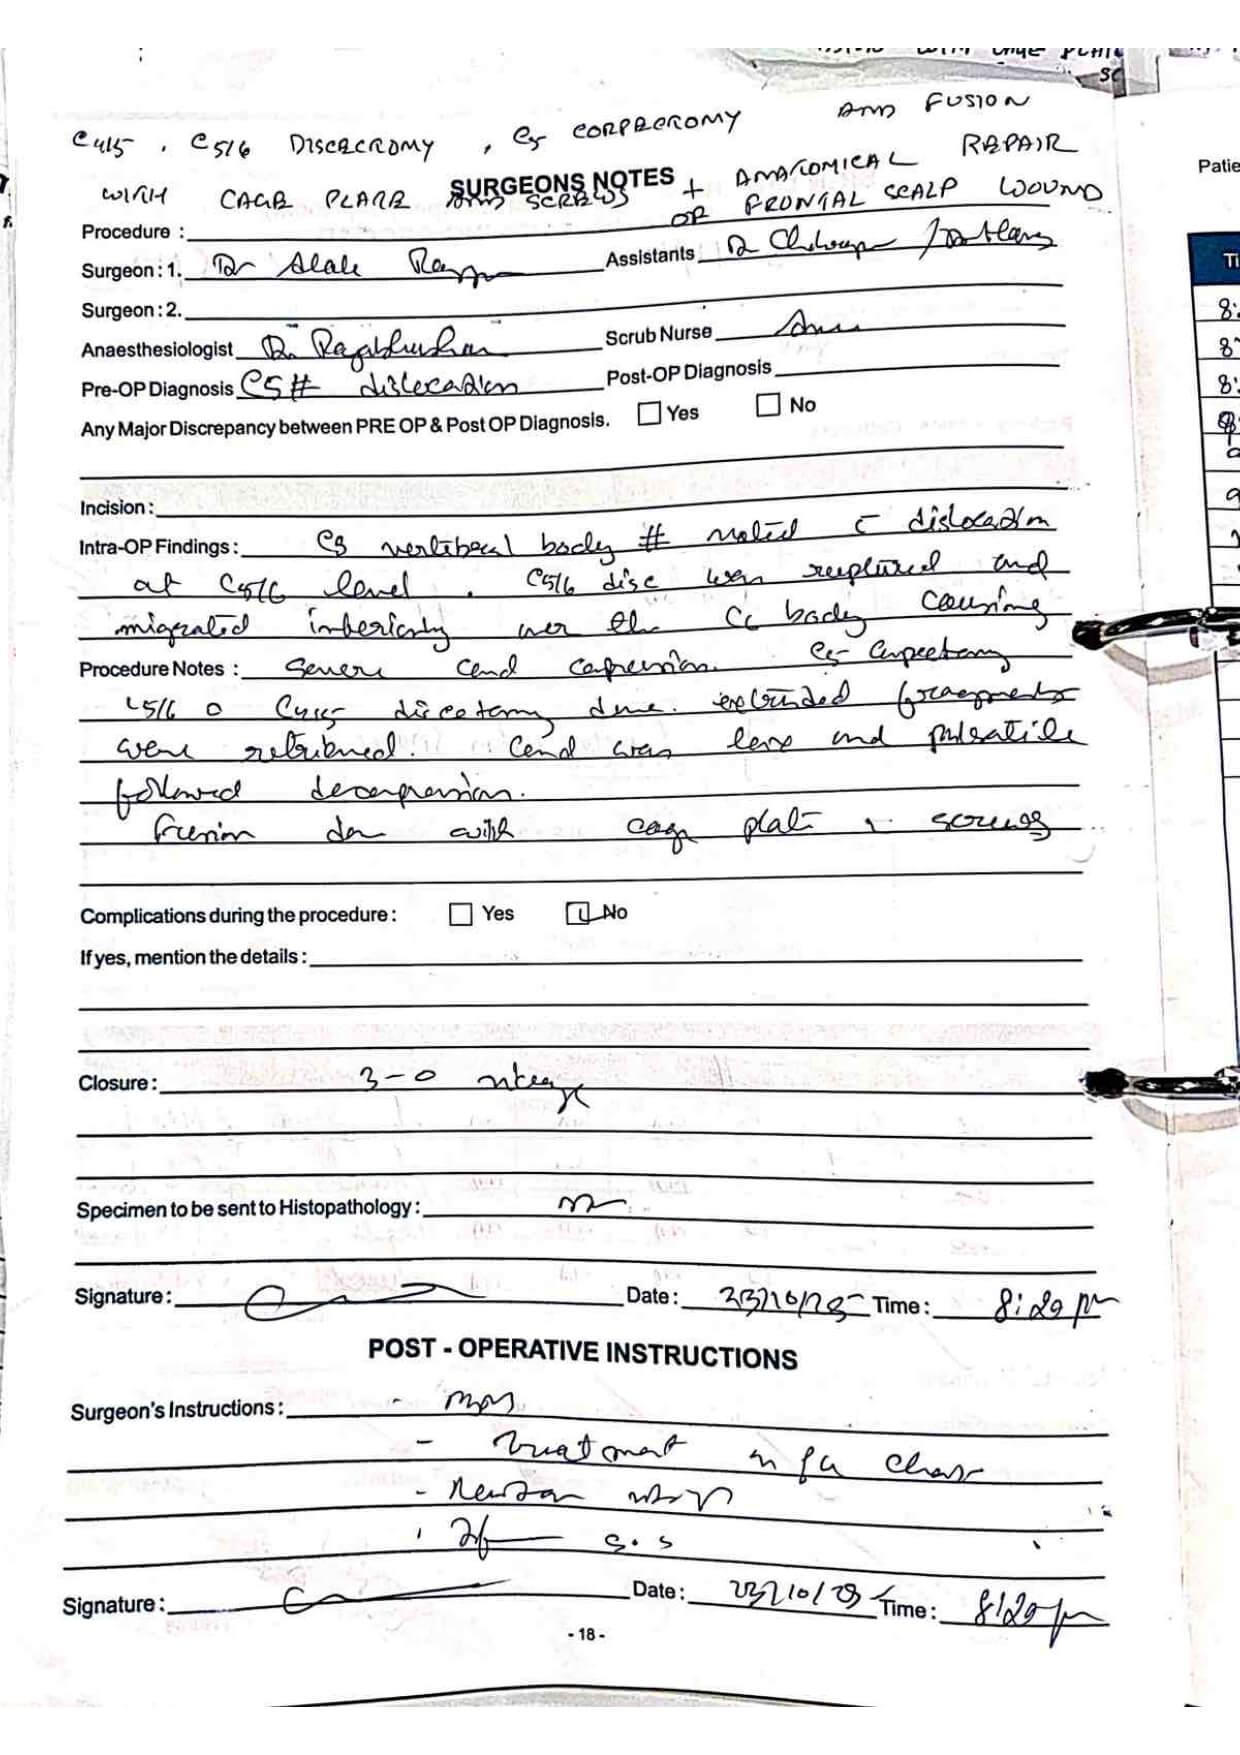 C4/5, C5/6 DISCECTOMY, C5 CORPECTOMY AND FUSION
WITH CAGE PLATE AND SCREWS + ANATOMICAL REPAIR
OF FRONTAL SCALP WOUND
SURGEONS NOTES
Procedure :
Surgeon : 1. Dr Alok Assistants Dr
Surgeon : 2.
Anaesthesiologist Dr. Rajabhushan Scrub Nurse
Pre-OP Diagnosis C5 # dislocation Post-OP Diagnosis
Any Major Discrepancy between PRE OP & Post OP Diagnosis. Yes No
Incision :
Intra-OP Findings : C5 vertibral body # noted c̄ dislocation
at C5/6 level. C5/6 disc was ruptured and
migrated inferiorly over the C6 body causing
Procedure Notes : severe cord compression. C5 corpectomy
C5/6 C4/5 discectomy done. extruded fragments
were retrieved. Cord was lax and pulsatile
followed decompression.
Fusion done with cage plate & screws
Complications during the procedure : Yes No
If yes, mention the details :
Closure : 3-0
Specimen to be sent to Histopathology :
Signature : Date : 23/10/25 Time : 8:20 pm
POST - OPERATIVE INSTRUCTIONS
Surgeon's Instructions :
- Treatment as per chart
-
Signature : Date : 23/10/25 Time : 8:20 pm
- 18 -
Patie
Ti